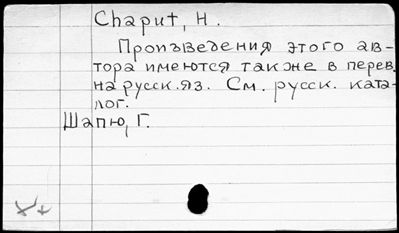 Chaput, H.
Произведения этого ав-
тора имеются также в перев.
на русск. яз. См. русск. ката-
лог.
Шапю, Г.